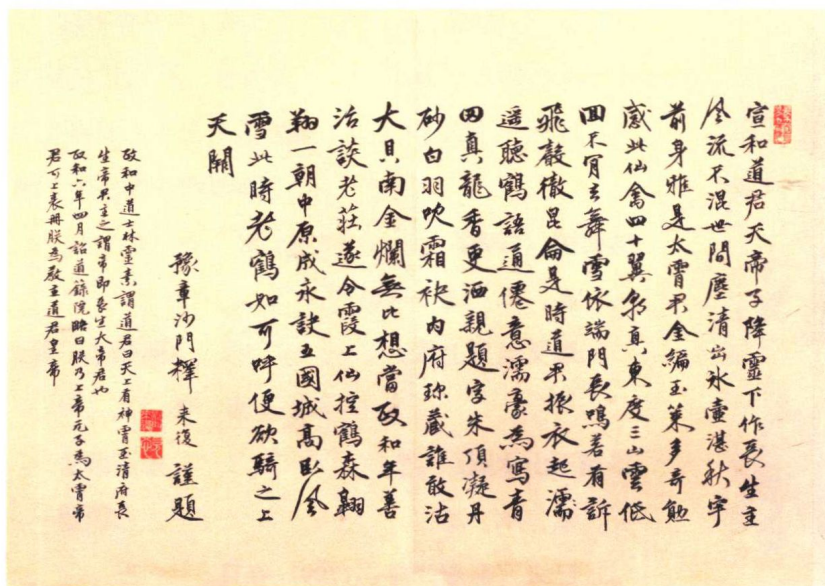 宣和道君天帝子降靈下作長生主
風流不混世間塵清出冰壺湛秋宇
前身雅是太霄君金編玉策多奇勳
感此仙禽四十翼朝真東度三山雲低
回不肯去舞雪依端門長鳴若有訴
飛聲徹崑崙是時道君振衣起濡
遥聽鶴語通僊意濡豪為寫青
田真龍香更洒親題字朱頂凝丹
砂白羽吹霜袂內府珍藏誰敢沽
大貝南金爛無比想當政和年善
治談老莊遂令霞上仙控鶴森翱
翔一朝中原成永訣五國城高臥風
雪此時老鶴如可呼便欲騎之上
天闕
豫章沙門釋 来復 謹題
政和中道士林靈素謂道君曰天上有神霄玉清府長
生帝君主之謂帝即長生大帝君也
政和六年四月詔道錄院略曰朕乃上帝元子為太霄帝
君可上表冊朕為教主道君皇帝